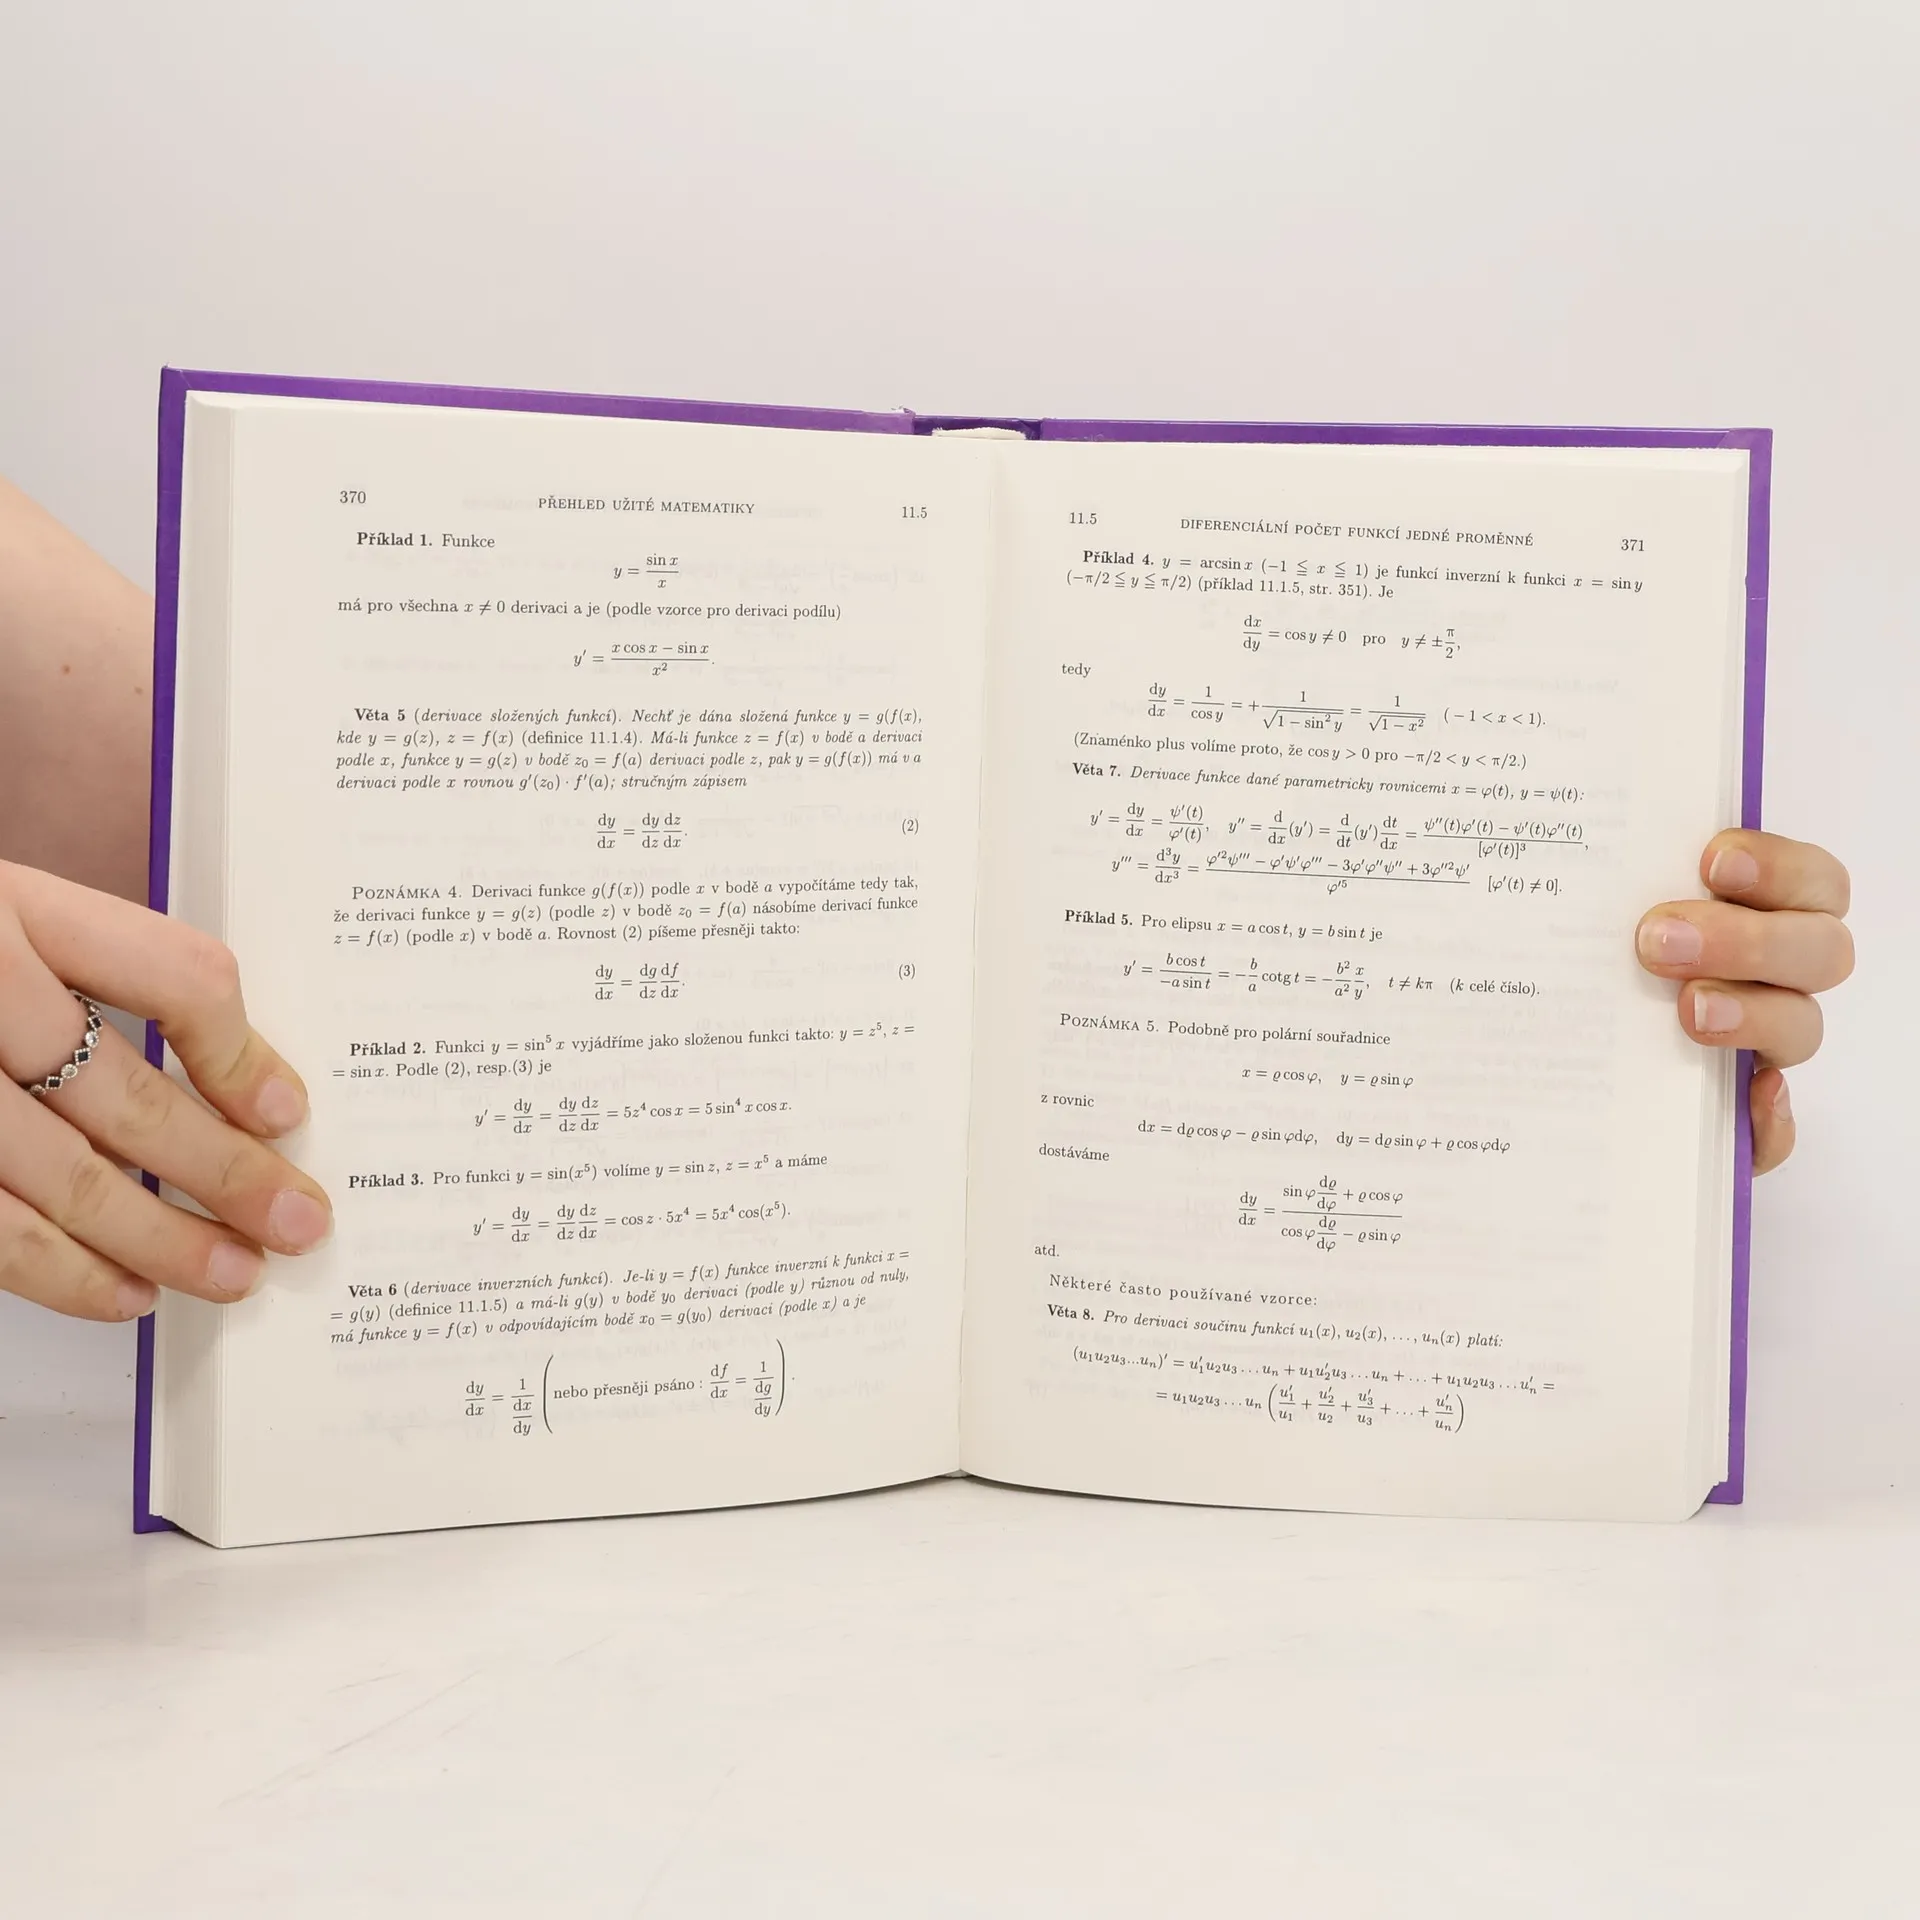 370 PŘEHLED UŽITÉ MATEMATIKY 11.5
Příklad 1. Funkce
y = \frac{\sin x}{x}
má pro všechna x ≠ 0 derivaci a je (podle vzorce pro derivaci podílu)
y' = \frac{x \cos x − \sin x}{x^2}.
Věta 5 (derivace složených funkcí). Nechť je dána složená funkce y = g(f(x),
kde y = g(z), z = f(x) (definice 11.1.4). Má-li funkce z = f(x) v bodě a derivaci
podle x, funkce y = g(z) v bodě z_0 = f(a) derivaci podle z, pak y = g(f(x)) má v a
derivaci podle x rovnou g'(z_0) · f'(a); stručným zápisem
\frac{dy}{dx} = \frac{dy}{dz} \frac{dz}{dx}. (2)
POZNÁMKA 4. Derivaci funkce g(f(x)) podle x v bodě a vypočítáme tedy tak,
že derivaci funkce y = g(z) (podle z) v bodě z_0 = f(a) násobíme derivací funkce
z = f(x) (podle x) v bodě a. Rovnost (2) píšeme přesněji takto:
\frac{dy}{dx} = \frac{dg}{dz} \frac{df}{dx}. (3)
Příklad 2. Funkci y = sin^5 x vyjádříme jako složenou funkci takto: y = z^5, z =
= sin x. Podle (2), resp.(3) je
y' = \frac{dy}{dx} = \frac{dy}{dz} \frac{dz}{dx} = 5z^4 cos x = 5 sin^4 x cos x.
Příklad 3. Pro funkci y = sin(x^5) volíme y = sin z, z = x^5 a máme
y' = \frac{dy}{dx} = \frac{dy}{dz} \frac{dz}{dx} = cos z · 5x^4 = 5x^4 cos(x^5).
Věta 6 (derivace inverzních funkcí). Je-li y = f(x) funkce inverzní k funkci x =
= g(y) (definice 11.1.5) a má-li g(y) v bodě y_0 derivaci (podle y) různou od nuly,
má funkce y = f(x) v odpovídajícím bodě x_0 = g(y_0) derivaci (podle x) a je
\frac{dy}{dx} = \frac{1}{\frac{dx}{dy}} ( nebo přesněji psáno : \frac{df}{dx} = \frac{1}{\frac{dg}{dy}} ).
11.5 DIFERENCIÁLNÍ POČET FUNKCÍ JEDNÉ PROMĚNNÉ 371
Příklad 4. y = arcsin x (−1 ≦ x ≦ 1) je funkcí inverzní k funkci x = sin y
(−π/2 ≦ y ≦ π/2) (příklad 11.1.5, str. 351). Je
\frac{dx}{dy} = cos y ≠ 0 pro y ≠ ±\frac{π}{2},
tedy
\frac{dy}{dx} = \frac{1}{\cos y} = +\frac{1}{\sqrt{1 − \sin^2 y}} = \frac{1}{\sqrt{1 − x^2}} ( − 1 < x < 1).
(Znaménko plus volíme proto, že cos y > 0 pro −π/2 < y < π/2.)
Věta 7. Derivace funkce dané parametricky rovnicemi x = φ(t), y = ψ(t):
y' = \frac{dy}{dx} = \frac{ψ'(t)}{φ'(t)}, y'' = \frac{d}{dx}(y') = \frac{d}{dt}(y')\frac{dt}{dx} = \frac{ψ''(t)φ'(t) − ψ'(t)φ''(t)}{[φ'(t)]^3},
y''' = \frac{d^3y}{dx^3} = \frac{φ'^2ψ''' − φ'ψ'φ''' − 3φ'φ''ψ'' + 3φ''^2ψ'}{φ'^5} [φ'(t) ≠ 0].
Příklad 5. Pro elipsu x = a cos t, y = b sin t je
y' = \frac{b \cos t}{−a \sin t} = −\frac{b}{a} cotg t = −\frac{b^2}{a^2} \frac{x}{y}, t ≠ kπ (k celé číslo).
POZNÁMKA 5. Podobně pro polární souřadnice
x = ϱ cos φ, y = ϱ sin φ
z rovnic
dx = dϱ cos φ − ϱ sin φdφ, dy = dϱ sin φ + ϱ cos φdφ
dostáváme
\frac{dy}{dx} = \frac{\sin φ \frac{dϱ}{dφ} + ϱ \cos φ}{\cos φ \frac{dϱ}{dφ} − ϱ \sin φ}
atd.
Některé často používané vzorce:
Věta 8. Pro derivaci součinu funkcí u_1(x), u_2(x), …, u_n(x) platí:
(u_1u_2u_3...u_n)' = u'_1u_2u_3 … u_n + u_1u'_2u_3 … u_n + … + u_1u_2u_3 … u'_n =
= u_1u_2u_3 … u_n ( \frac{u'_1}{u_1} + \frac{u'_2}{u_2} + \frac{u'_3}{u_3} + … + \frac{u'_n}{u_n} )